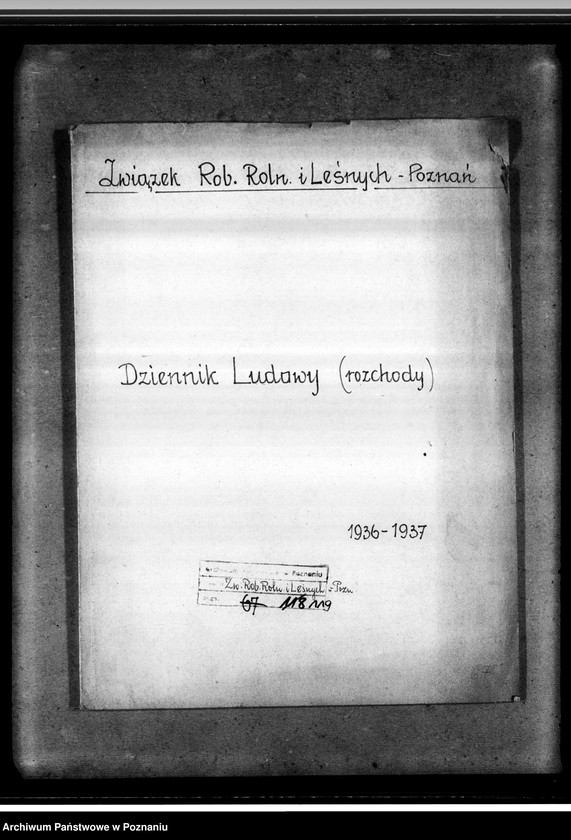 Związek Rob. Roln. i Leśnych - Poznań
Dziennik Ludowy (rozchody)
1936-1937
w Poznaniu
Zw. Rob. Roln. i Leśnych - Pozn
67 118 119
Archiwum Państwowe w Poznaniu